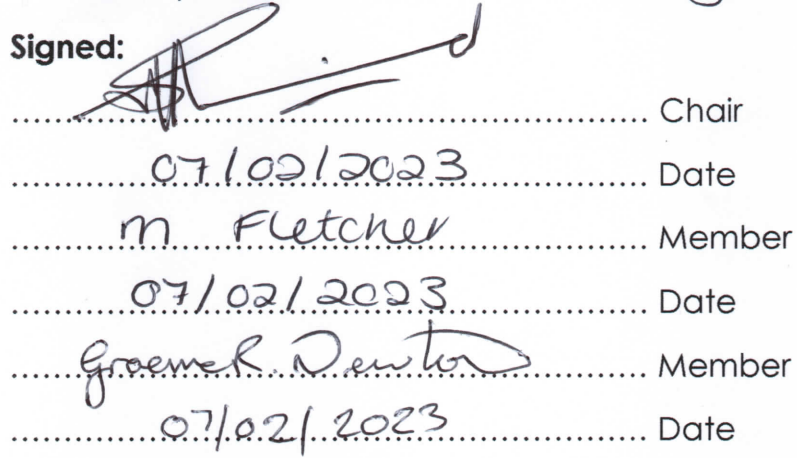 Signed:
Chair
07/02/2023 Date
M Fletcher Member
07/02/2023 Date
Graeme R. Newton Member
07/02/2023 Date